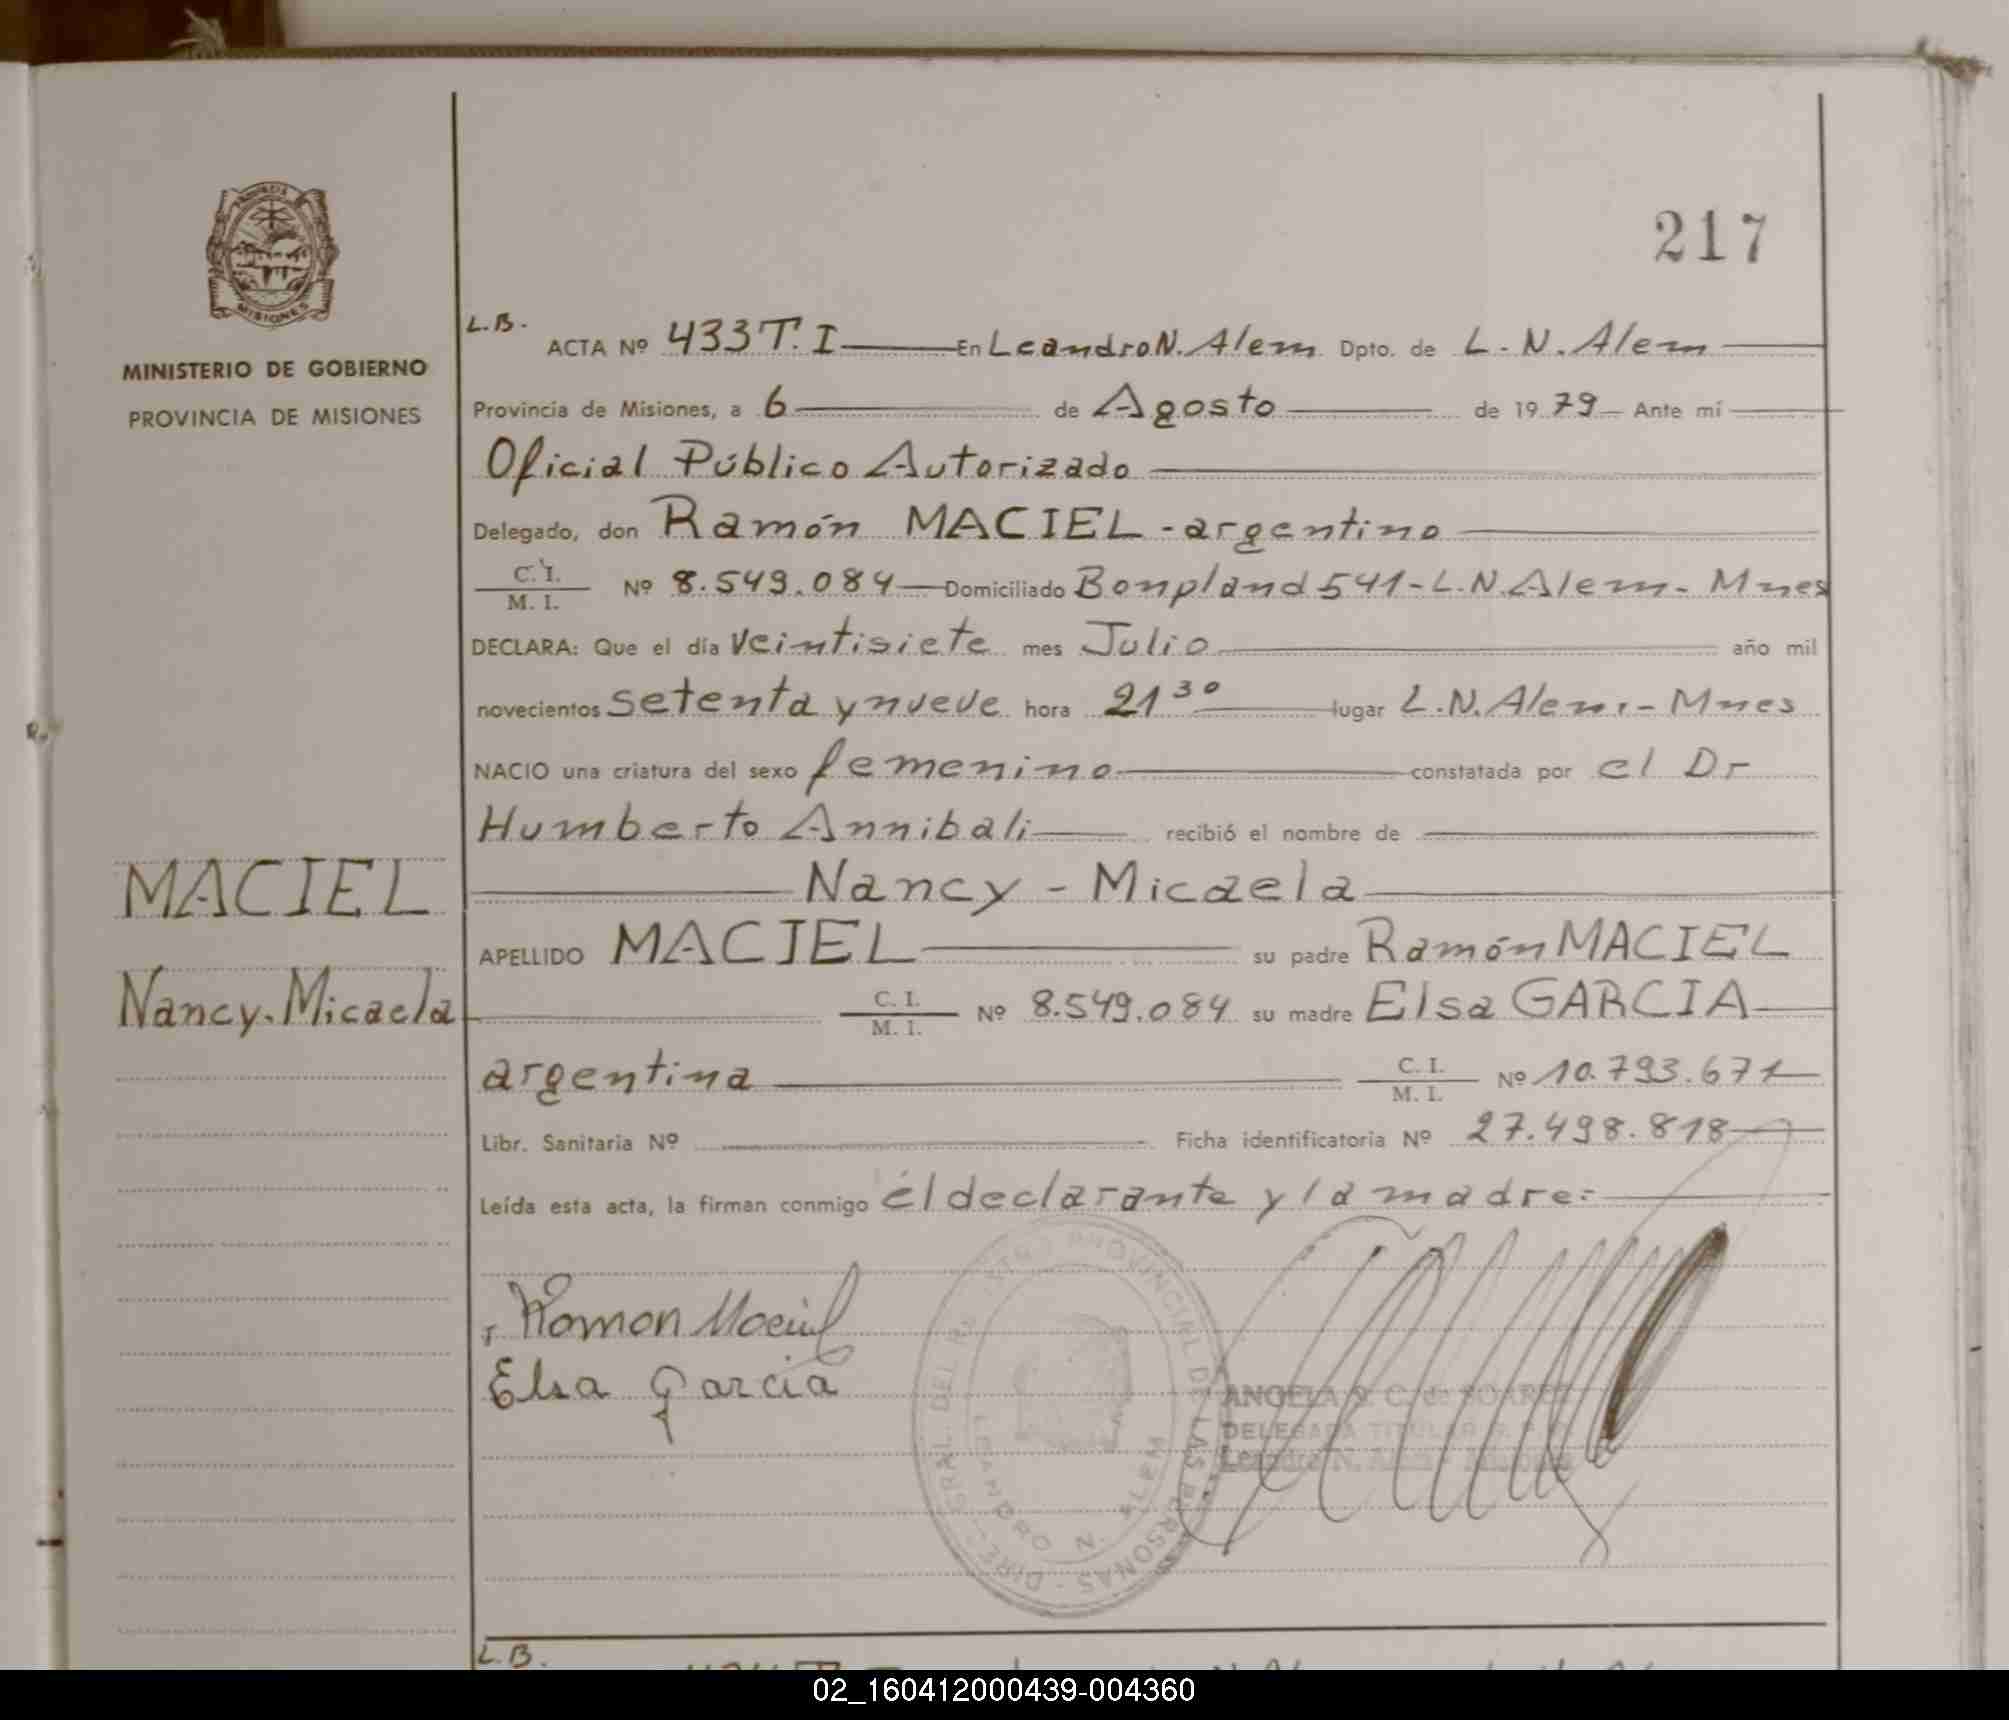 217
PROVINCIA
MISIONES
MINISTERIO DE GOBIERNO
PROVINCIA DE MISIONES
L.B.
ACTA Nº 433 T. I En Leandro N. Alem Dpto. de L. N. Alem
Provincia de Misiones, a 6 de Agosto de 1979 Ante mí
Oficial Público Autorizado
Delegado, don Ramón MACIEL - argentino
C. I. / M. I. Nº 8.549.084 Domiciliado Bonpland 541 - L. N. Alem - Mnes
DECLARA: Que el día veintisiete mes Julio año mil
novecientos setenta y nueve hora 21 30 lugar L. N. Alem - Mnes
NACIO una criatura del sexo femenino constatada por el Dr
Humberto Annibali recibió el nombre de
Nancy - Micaela
MACIEL
Nancy. Micaela
APELLIDO MACIEL su padre Ramón MACIEL
C. I. / M. I. Nº 8.549.084 su madre Elsa GARCIA
argentina C. I. / M. I. Nº 10.793.671
Libr. Sanitaria Nº Ficha identificatoria Nº 27.498.818
Leída esta acta, la firman conmigo él declarante y la madre:
Ramon Maciel
Elsa Garcia
PROVINCIAL DE LAS PERSONAS - DIRE
LEANDRO N. ALEM
ANGELA C. de
DELEGADA TITULAR
Leandro N. Alem -
L.B.
02_160412000439-004360